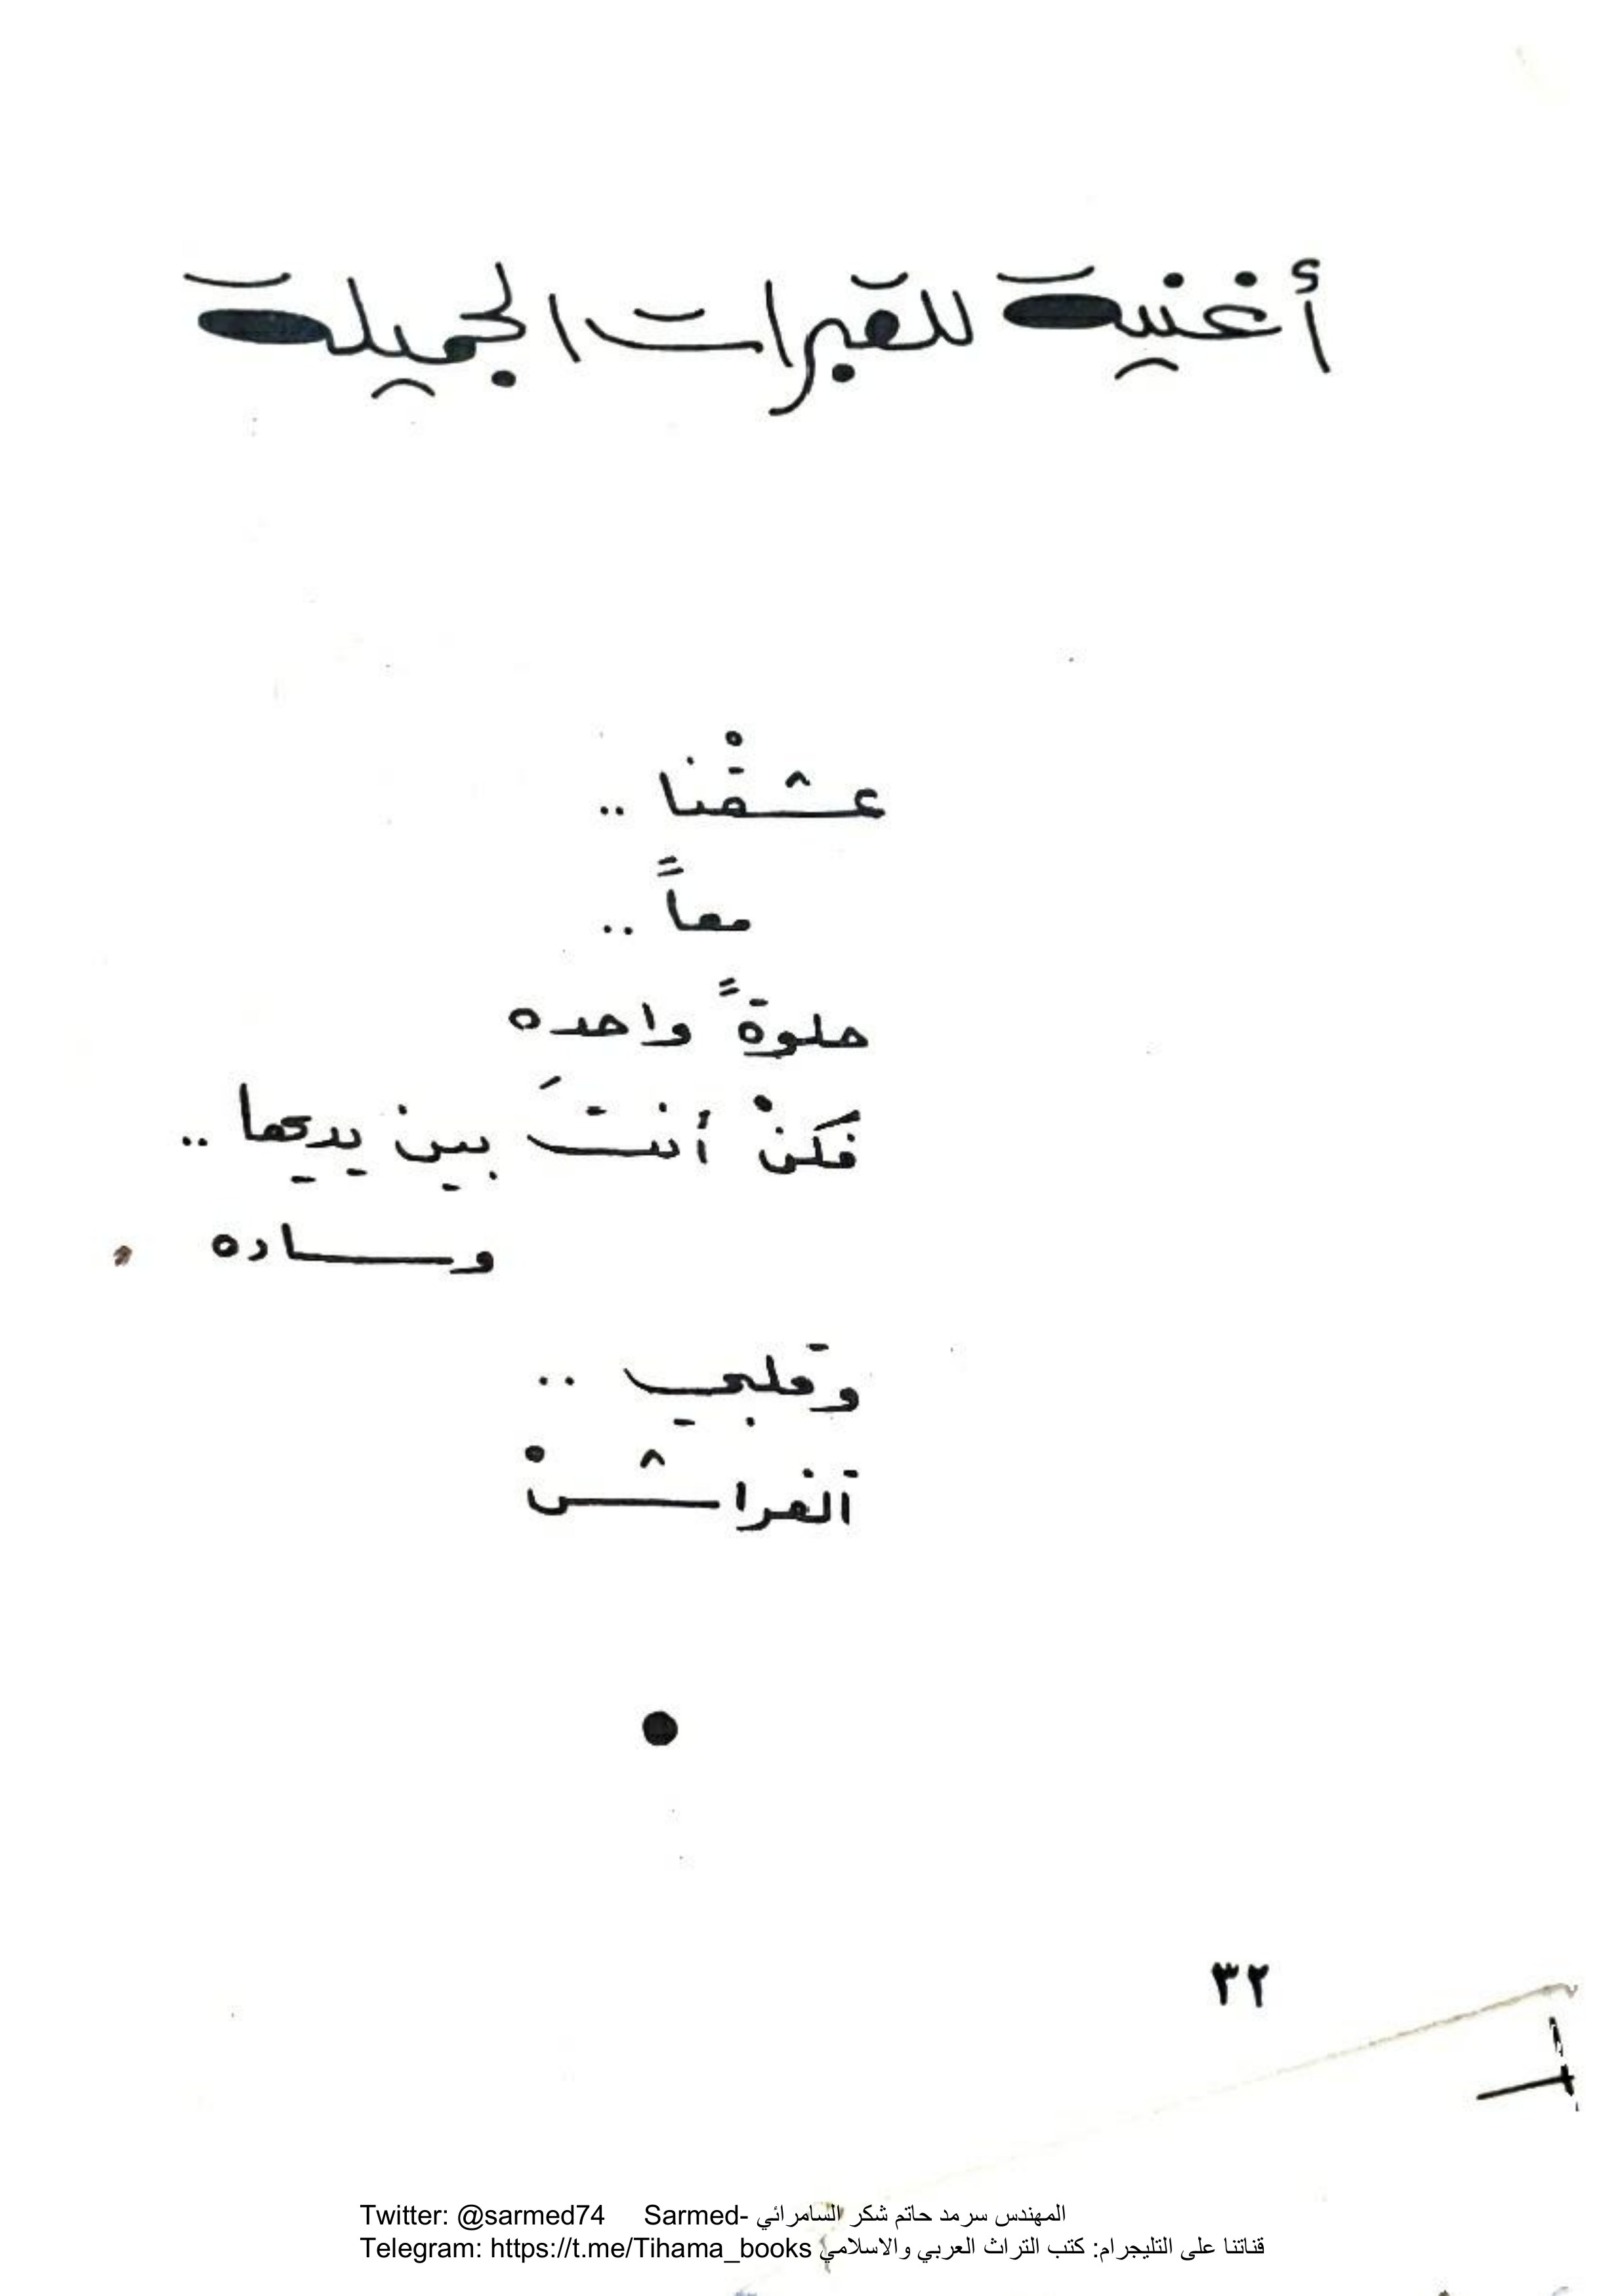 أغنية للقبرات الجميلة
عشقْنا ..
معاً ..
حلوةً واحده
فكنْ أنتَ بين يديها ..
وساده
وقلبي ..
الفراشْ
●
٣٢
Twitter: @sarmed74 Sarmed- المهندس سرمد حاتم شكر السامرائي
Telegram: https://t.me/Tihama_books قناتنا على التليجرام: كتب التراث العربي والاسلامي